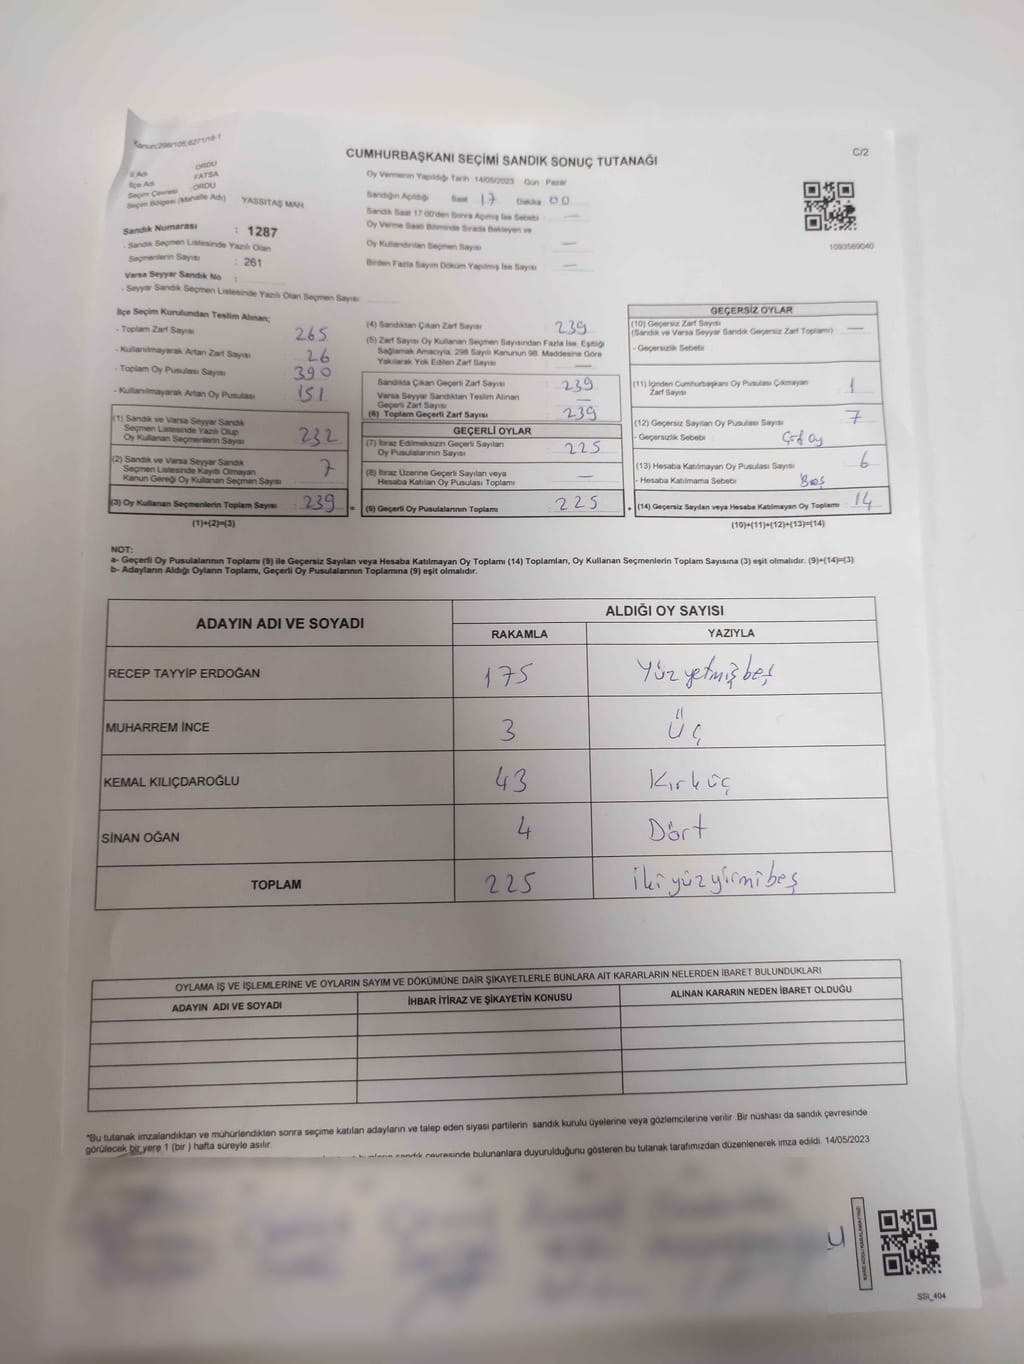 Kanun:298/105,6271/18-1
CUMHURBAŞKANI SEÇİMİ SANDIK SONUÇ TUTANAĞI
C/2
İl Adı : ORDU
İlçe Adı : FATSA
Seçim Çevresi : ORDU
Seçim Bölgesi (Mahalle Adı) YASSITAŞ MAH.
Sandık Numarası : 1287
- Sandık Seçmen Listesinde Yazılı Olan
Seçmenlerin Sayısı : 261
Varsa Seyyar Sandık No :
- Seyyar Sandık Seçmen Listesinde Yazılı Olan Seçmen Sayısı
Oy Vermenin Yapıldığı Tarih 14/05/2023 Gün Pazar
Sandığın Açıldığı Saat 17 Dakika 00
Sandık Saat 17:00'den Sonra Açılmış İse Sebebi —
Oy Verme Saati Bitiminde Sırada Bekleyen ve
Oy Kullandırılan Seçmen Sayısı —
Birden Fazla Sayım Döküm Yapılmış İse Sayısı —
1093569040
İlçe Seçim Kurulundan Teslim Alınan;
- Toplam Zarf Sayısı 265
- Kullanılmayarak Artan Zarf Sayısı 26
- Toplam Oy Pusulası Sayısı 390
- Kullanılmayarak Artan Oy Pusulası 151
(1) Sandık ve Varsa Seyyar Sandık
Seçmen Listesinde Yazılı Olup
Oy Kullanan Seçmenlerin Sayısı 232
(2) Sandık ve Varsa Seyyar Sandık
Seçmen Listesinde Kayıtlı Olmayan
Kanun Gereği Oy Kullanan Seçmen Sayısı 7
(3) Oy Kullanan Seçmenlerin Toplam Sayısı 239
(1)+(2)=(3)
(4) Sandıktan Çıkan Zarf Sayısı 239
(5) Zarf Sayısı Oy Kullanan Seçmen Sayısından Fazla İse, Eşitliği
Sağlamak Amacıyla, 298 Sayılı Kanunun 98. Maddesine Göre
Yakılarak Yok Edilen Zarf Sayısı —
Sandıkta Çıkan Geçerli Zarf Sayısı 239
Varsa Seyyar Sandıktan Teslim Alınan
Geçerli Zarf Sayısı —
(6) Toplam Geçerli Zarf Sayısı 239
GEÇERLİ OYLAR
(7) İtiraz Edilmeksizin Geçerli Sayılan
Oy Pusulalarının Sayısı 225
(8) İtiraz Üzerine Geçerli Sayılan veya
Hesaba Katılan Oy Pusulası Toplamı —
= (9) Geçerli Oy Pusulalarının Toplamı 225
GEÇERSİZ OYLAR
(10) Geçersiz Zarf Sayısı
(Sandık ve Varsa Seyyar Sandık Geçersiz Zarf Toplamı) —
- Geçersizlik Sebebi
(11) İçinden Cumhurbaşkanı Oy Pusulası Çıkmayan
Zarf Sayısı 1
(12) Geçersiz Sayılan Oy Pusulası Sayısı 7
- Geçersizlik Sebebi Çift oy
(13) Hesaba Katılmayan Oy Pusulası Sayısı 6
- Hesaba Katılmama Sebebi Boş
+ (14) Geçersiz Sayılan veya Hesaba Katılmayan Oy Toplamı 14
(10)+(11)+(12)+(13)=(14)
NOT:
a- Geçerli Oy Pusulalarının Toplamı (9) ile Geçersiz Sayılan veya Hesaba Katılmayan Oy Toplamı (14) Toplamları, Oy Kullanan Seçmenlerin Toplam Sayısına (3) eşit olmalıdır. (9)+(14)=(3)
b- Adayların Aldığı Oyların Toplamı, Geçerli Oy Pusulalarının Toplamına (9) eşit olmalıdır.
ADAYIN ADI VE SOYADI
ALDIĞI OY SAYISI
RAKAMLA YAZIYLA
RECEP TAYYİP ERDOĞAN 175 Yüz yetmiş beş
MUHARREM İNCE 3 Üç
KEMAL KILIÇDAROĞLU 43 Kırk üç
SİNAN OĞAN 4 Dört
TOPLAM 225 iki yüz yirmi beş
OYLAMA İŞ VE İŞLEMLERİNE VE OYLARIN SAYIM VE DÖKÜMÜNE DAİR ŞİKAYETLERLE BUNLARA AİT KARARLARIN NELERDEN İBARET BULUNDUKLARI
ADAYIN ADI VE SOYADI İHBAR İTİRAZ VE ŞİKAYETİN KONUSU ALINAN KARARIN NEDEN İBARET OLDUĞU
*Bu tutanak imzalandıktan ve mühürlendikten sonra seçime katılan adayların ve talep eden siyasi partilerin sandık kurulu üyelerine veya gözlemcilerine verilir .Bir nüshası da sandık çevresinde
görülecek bir yere 1 (bir ) hafta süreyle asılır.
sandık çevresinde bulunanlara duyurulduğunu gösteren bu tutanak tarafımızdan düzenlenerek imza edildi. 14/05/2023
SSI_404